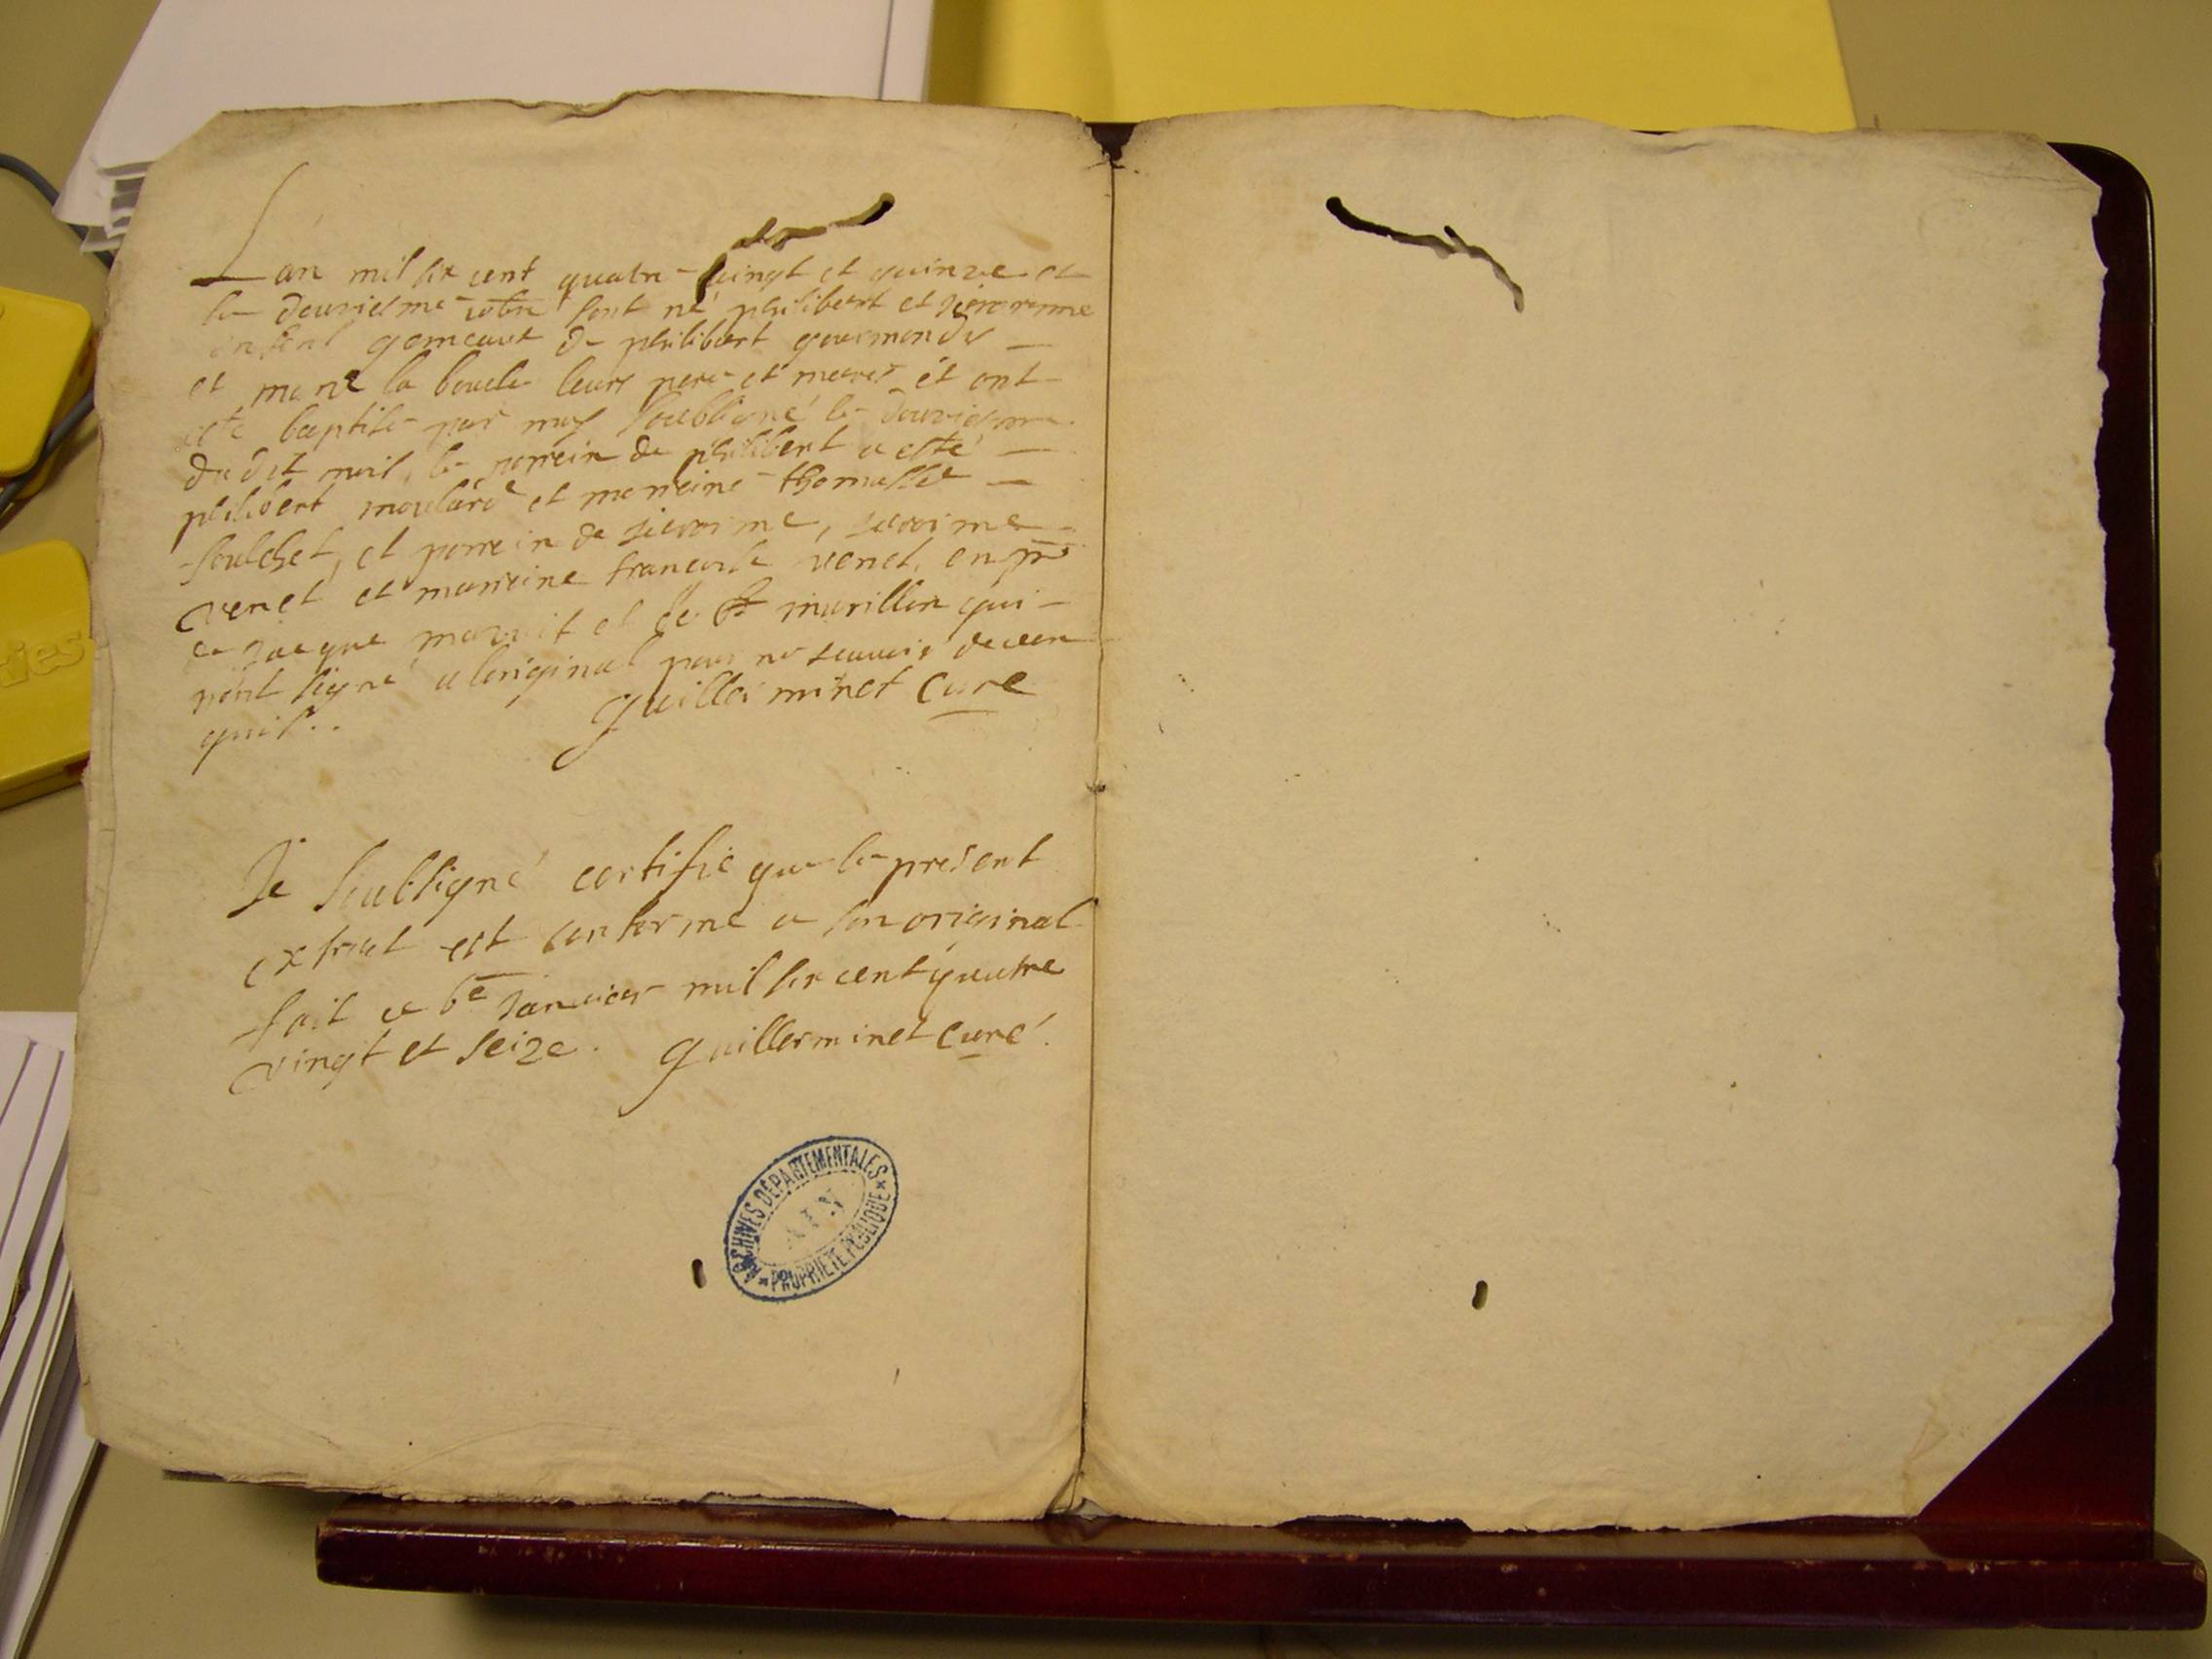 Lan mil six cent quatre-vingt et quinze et
le deuxiesme sont né philibert et
enfent gemeaux de philibert gourmand
et marie la boucle leurs pere et meres et ont
esté baptise par moy soubsigné le deuxiesme
dudit mois, le parrein de philibert a esté
philibert moulard et marreine thomasse
foulchet, et parrein de jierosme, jerosme
venet et marreine francoise venet, en pr
de jacque et de murillon qui
nont signé a loriginal pour ne scavoir de
quis..
guillerminet Cure
Je soubsigné certifie que le present
extrait est conforme a son original
fait ce 6e janvier mil six cent quatre
vingt et seize. guillerminet Curé.
ARCHIVES DÉPARTEMENTALES
AIN
PROPRIÉTÉ PUBLIQUE